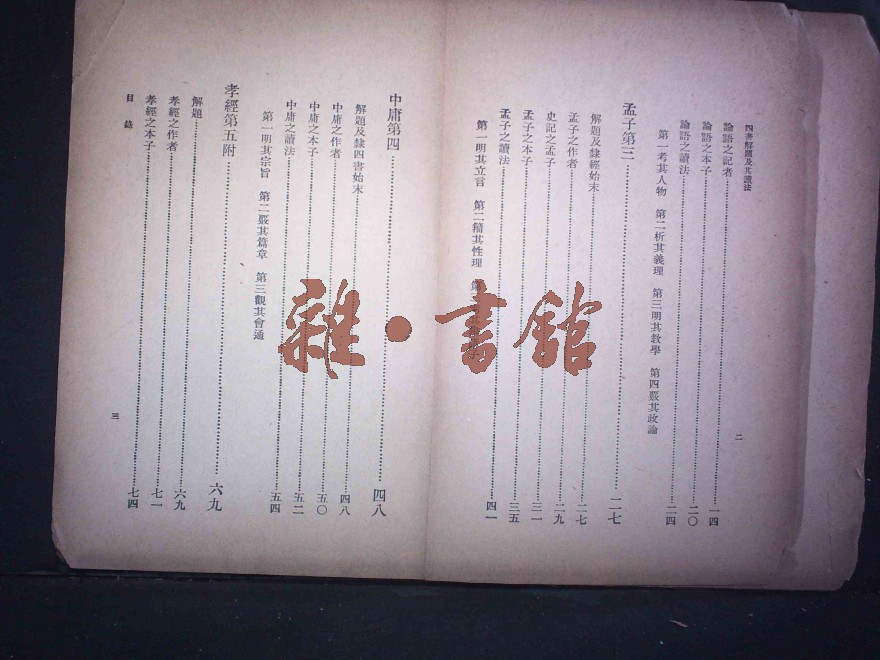 四書解題及其讀法
二
論語之記者……一四
論語之本子……二〇
論語之讀法……二四
第一考其人物 第二析其義理 第三明其教學 第四覈其政論
孟子第三……二七
解題及隸經始末……二七
孟子之作者……二九
史記之孟子……三一
孟子之本子……三五
孟子之讀法……四一
第一明其立言 第二籀其性理
中庸第四……四八
解題及隸四書始末……四八
中庸之作者……五〇
中庸之本子……五二
中庸之讀法……五四
第一明其宗旨 第二覈其篇章 第三觀其會通
孝經第五附……六九
解題……六九
孝經之作者……七一
孝經之本子……七四
目錄
三
雜·書館